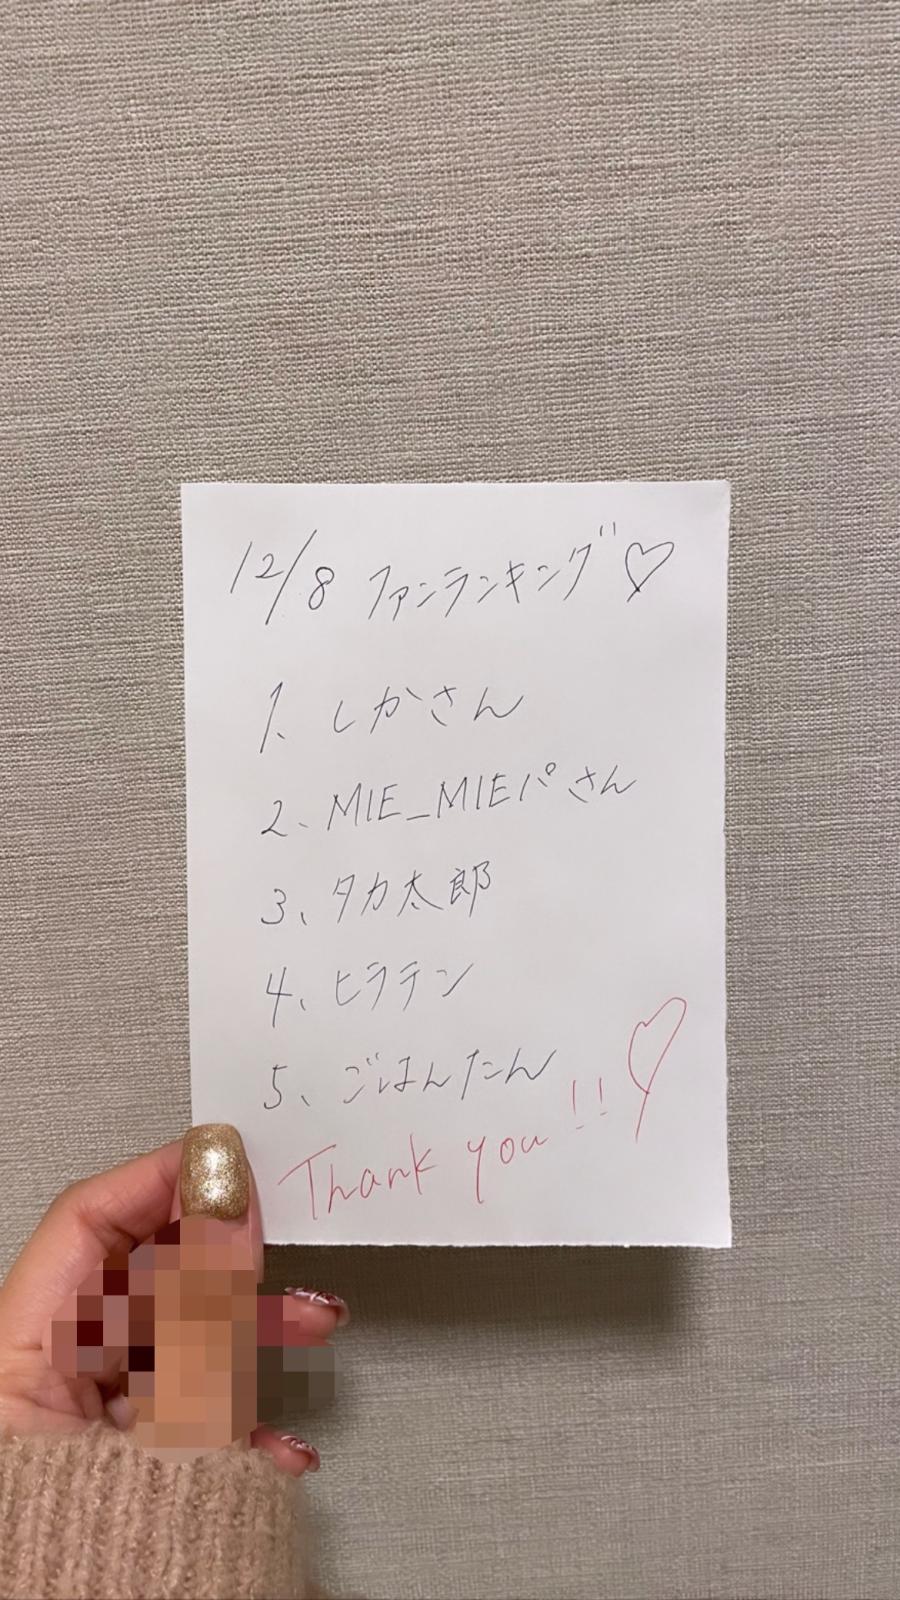 12/8 ファンランキング♡
1、しかさん
2、MIE_MIEパさん
3、タカ太郎
4、ヒラテン
5、ごはんたん
Thank you!!♡